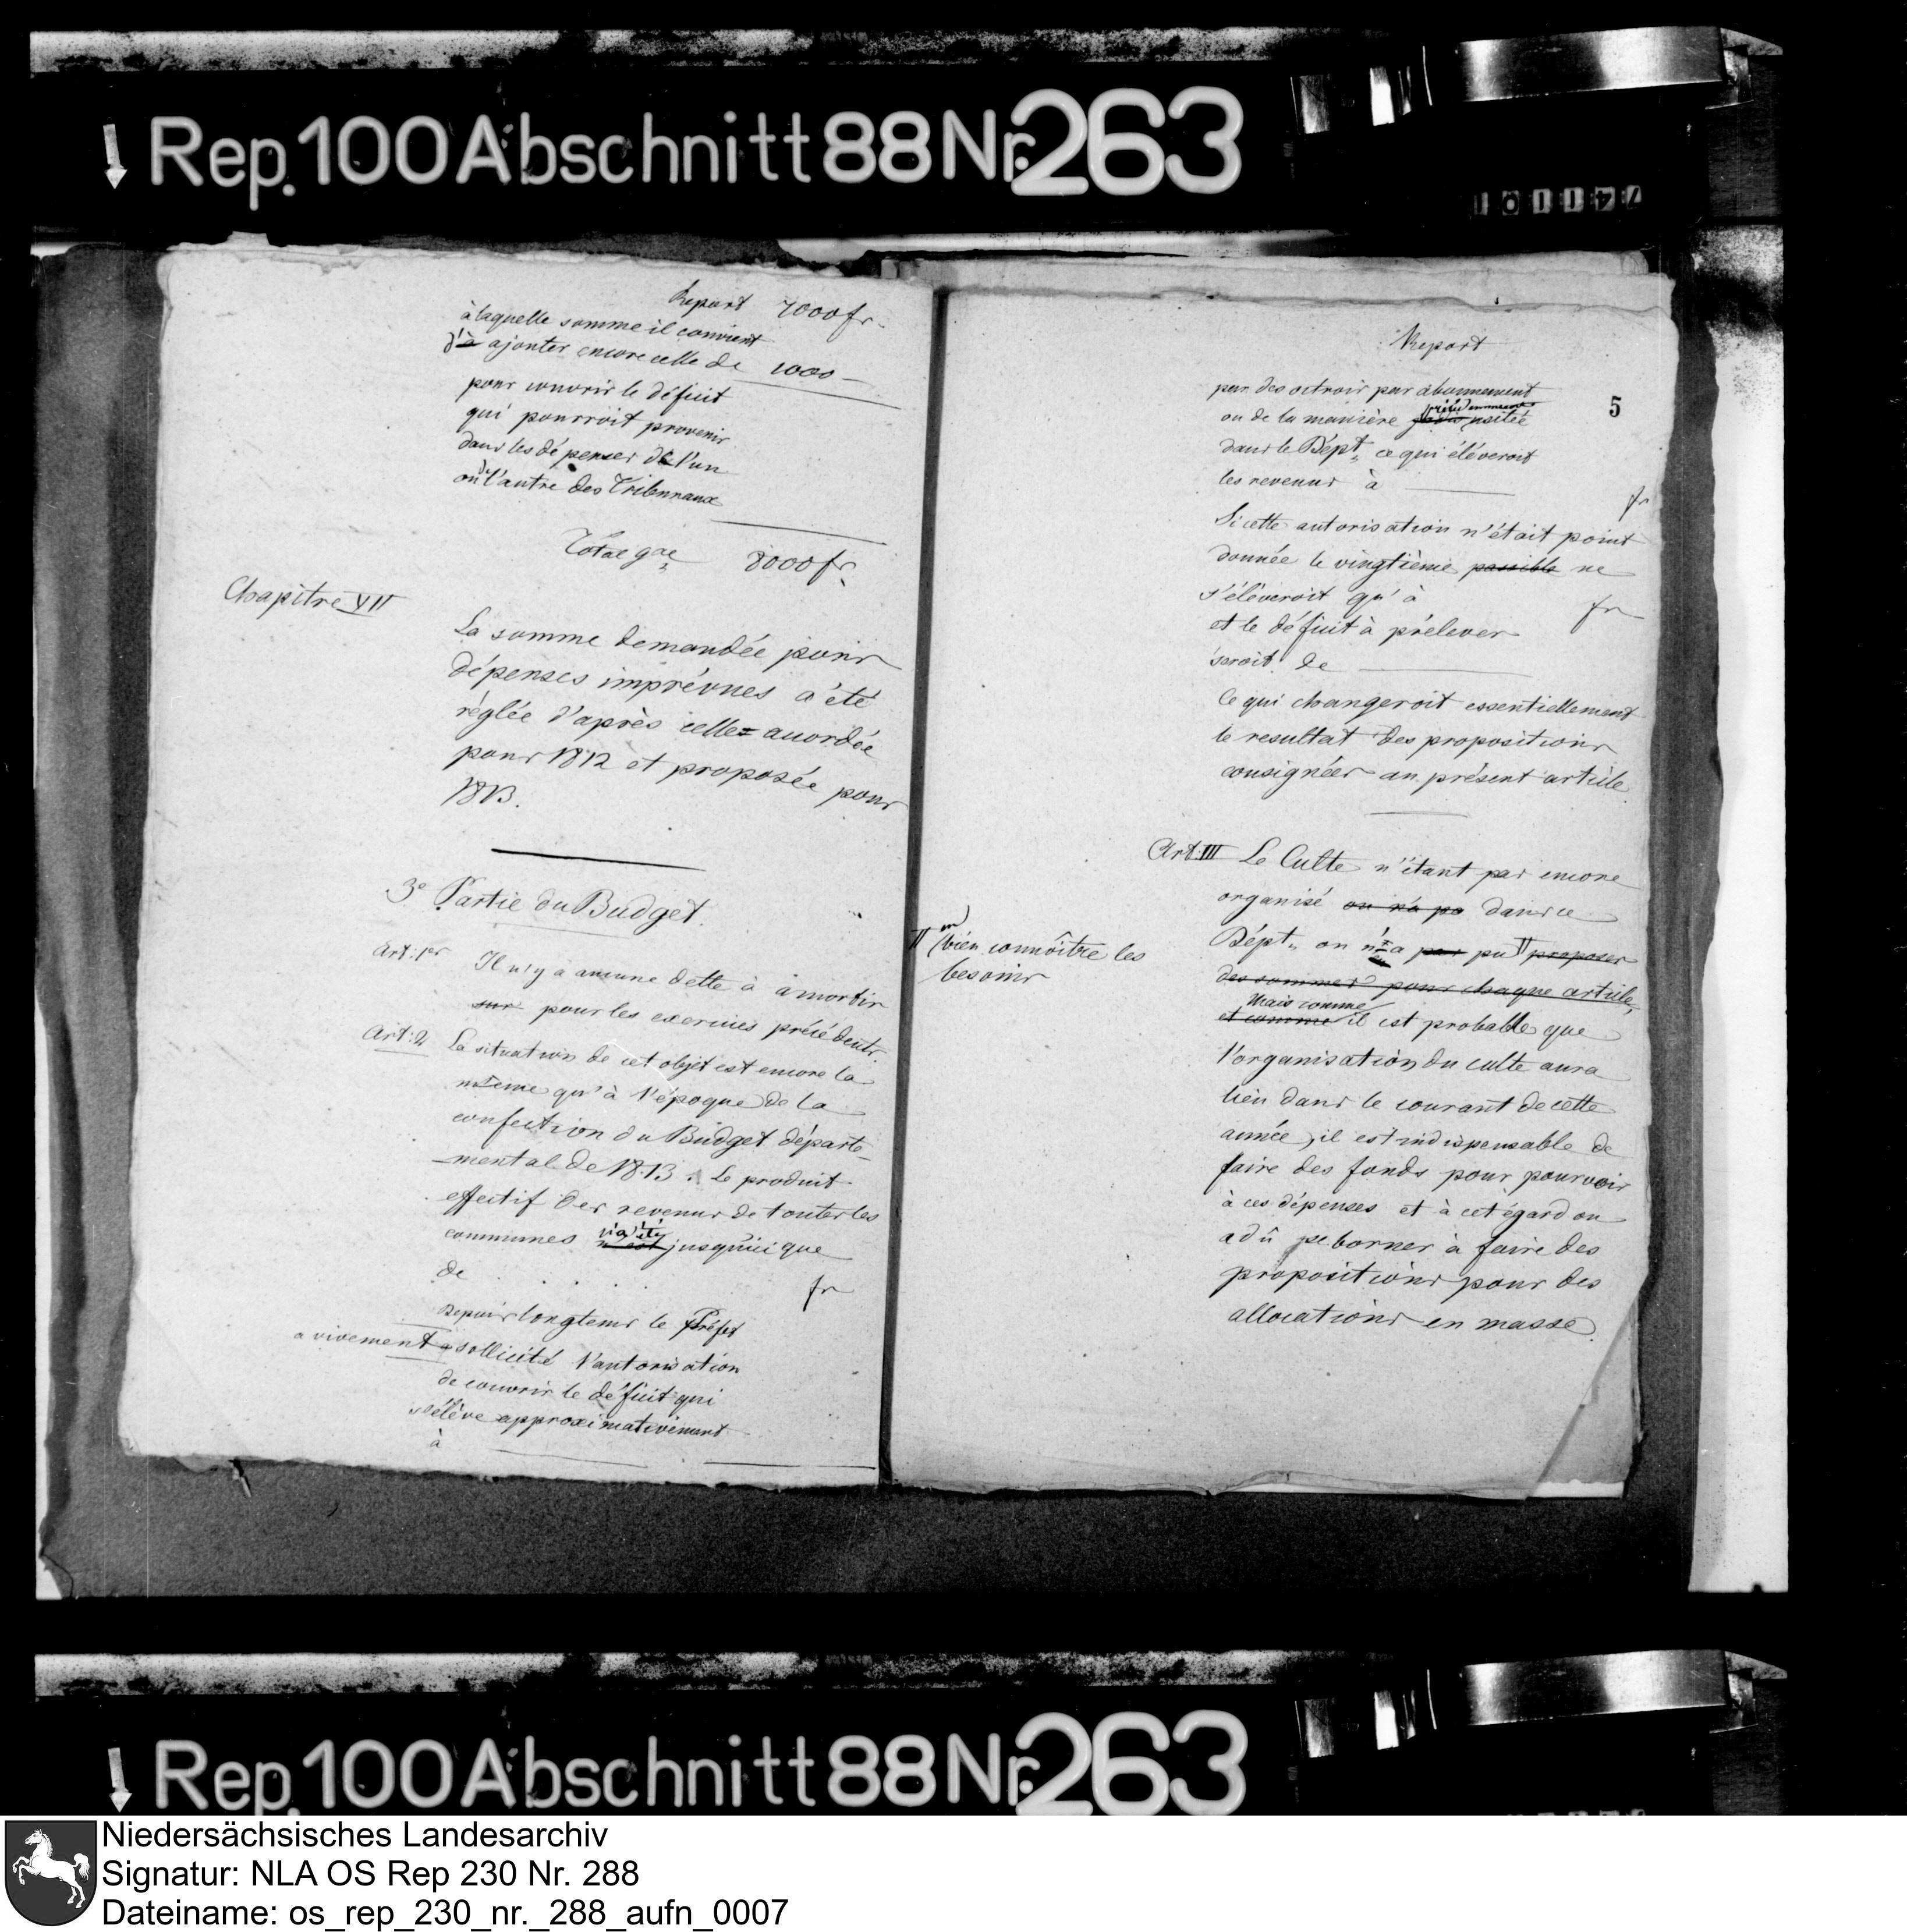 Rep. 100 Abschnitt 88 Nr. 263
Report 7000 fr.
à laquelle somme il convient
d'à ajouter encore celle de 1000 —
pour couvrir le déficit
qui pourroit provenir
dans les dépenses de l'un
ou de l'autre des Tribunaux
Total gae 8000 fr.
Chapitre VII
La somme demandée pour
dépenses imprévues a été
réglée d'après celle accordée
pour 1812 et proposée pour
1813.
3e Partie du Budget.
Art: 1er Il n'y a aucune dette à amortir
sur pour les exercices précédents.
Art: 2 La situation de cet objet est encore la
même qu'à l'époque de la
confection du Budget départe-
mental de 1813. Le produit
effectif des revenus de toutes les
communes n'est n'a été jusqu'ici que
de . . . . fr
Depuis longtems le Préfet
a vivement sollicité l'autorisation
de couvrir le déficit qui
s'élève approximativement
à
5
Report
par des octrois par abonnement
ou de la manière précédemment usitée
dans le Dépt, ce qui éléveroit
les revenus à fr
Si cette autorisation n'était point
donnée le vingtième possible ne
s'éléveroit qu'à fr
et le déficit à prélever
seroit de
Ce qui changeroit essentiellement
le resultat des propositions
consignées au présent article.
Art: III Le Culte n'étant pas encore
organisé on n'a pa dans ce
Dépt, on n'a pas pu proposer
bien connoître les
besoins
des sommes pour chaque article,
et comme Mais comme il est probable que
l'organisation du culte aura
lieu dans le courant de cette
année, il est indispensable de
faire des fonds pour pourvoir
à ces dépenses et à cet égard on
a dû se borner à faire des
propositions pour des
allocations en masse.
Rep. 100 Abschnitt 88 Nr. 263
Niedersächsisches Landesarchiv
Signatur: NLA OS Rep 230 Nr. 288
Dateiname: os_rep_230_nr._288_aufn_0007